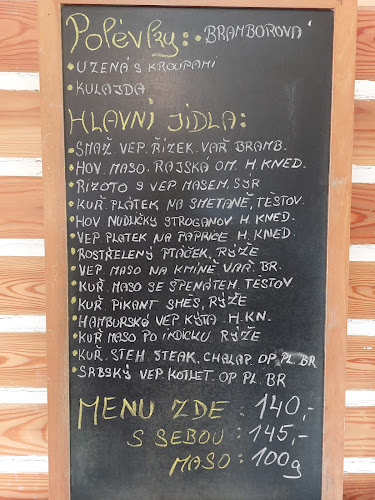 POLÉVKY: • BRAMBOROVÁ
• UZENÁ S KROUPAMI
• KULAJDA
HLAVNÍ JÍDLA:
• SMAŽ. VEP. ŘÍZEK. VAŘ. BRAMB.
• HOV. MASO. RAJSKÁ OM. H. KNED.
• RIZOTO S VEP. MASEM, SÝR
• KUŘ. PLÁTEK NA SMETANĚ, TĚSTOV.
• HOV NUDLIČKY STROGANOV H. KNED.
• VEP. PLÁTEK NA PAPRICE H. KNED.
• ROŠTĚLENÝ PTÁČEK, RÝŽE
• VEP. MASO NA KMÍNĚ VAŘ. BR.
• KUŘ. MASO SE ŠPENÁTEM, TĚSTOV
• KUŘ. PIKANT SMĚS, RÝŽE
• HAMBURSKÁ VEP. KÝTA H. KN.
• KUŘ MASO PO INDICKU RÝŽE
• KUŘ. STEH STEAK, CHALAP. OP. PL. BR
• SRBSKÝ VEP. KOTLET. OP. PL. BR
MENU ZDE : 140,-
S SEBOU : 145,-
MASO : 100g